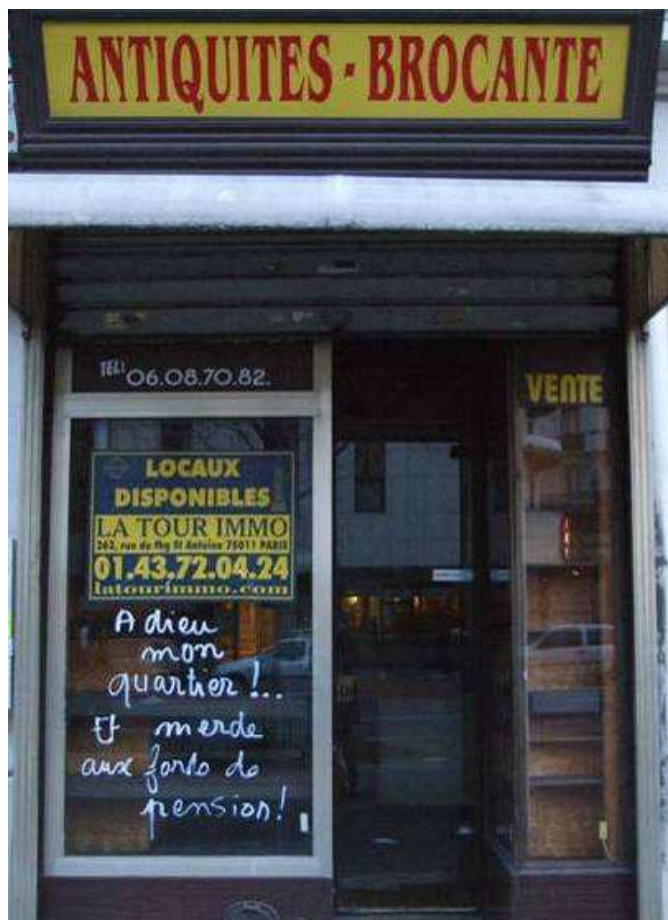 ANTIQUITES - BROCANTE
TEL: 06.08.70.82.
VENTE
LOCAUX
DISPONIBLES
LA TOUR IMMO
262, rue du Fbg St Antoine 75011 PARIS
01.43.72.04.24
latourimmo.com
A dieu
mon
quartier !..
Et merde
aux fonds de
pension !